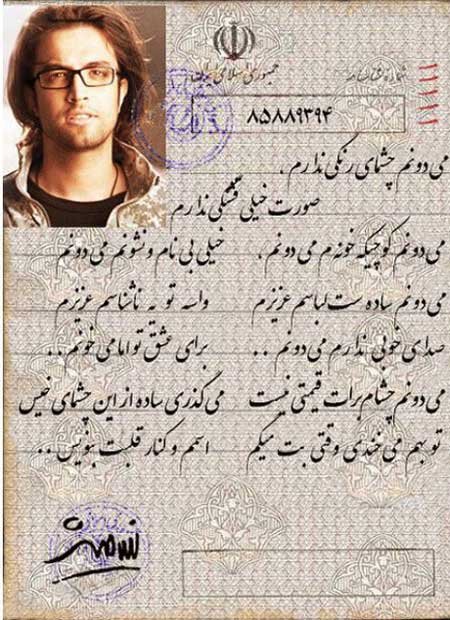 جمهوری اسلامی ایران
شماره شناسنامه
۱۱۱۸۱۱
۸۵۸۸۹۳۹۴
می دونم چشمای رنگی ندارم .
صورت خیلی قشنگی ندارم
می دونم کوچیکه خونه م می دونم . خیلی بی نام و نشونم می دونم
می دونم ساده ست لباسم عزیزم واسه تو یه ناشناسم عزیزم
صدای خوبی ندارم می دونم . . برای عشق تو اما می خونم . .
می دونم چشام برات قیمتی نیست می گذری ساده از این چشمای خیس
تو بهم می خندی وقتی بت میگم اسمم و کنار قلبت بنویس . .